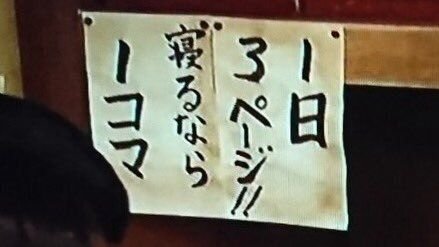 1日
3ページ!!
寝るなら
1コマ